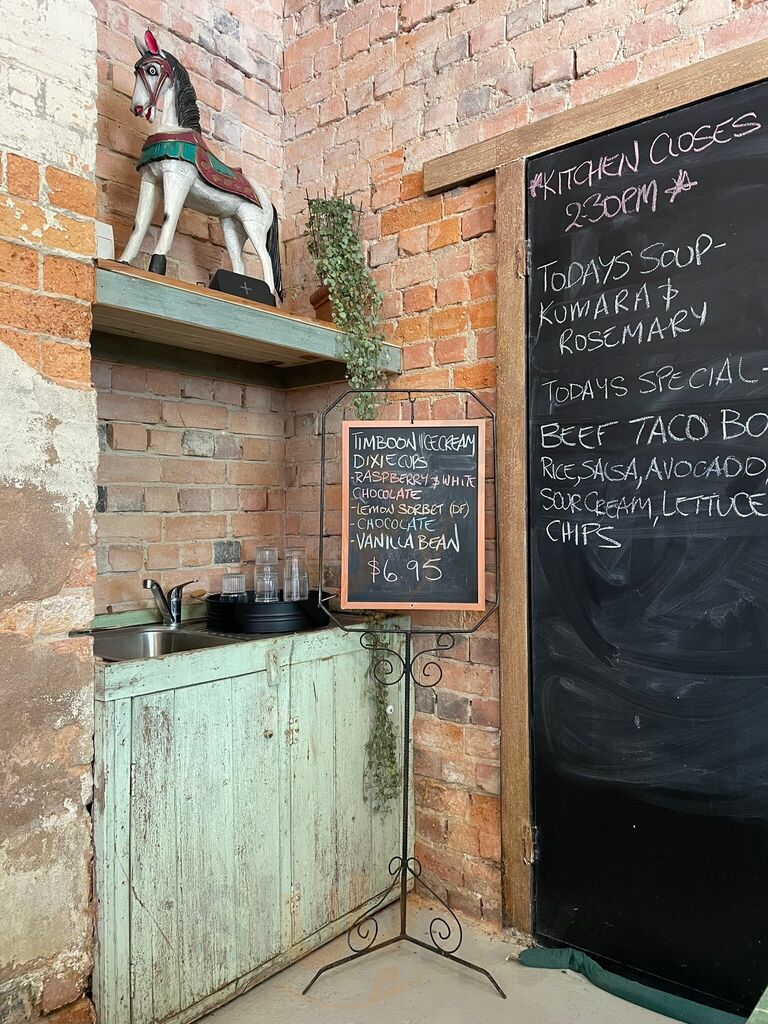 *KITCHEN CLOSES
2:30PM*
TODAYS SOUP-
KUMARA &
ROSEMARY
TODAYS SPECIAL-
BEEF TACO BO
RICE, SALSA, AVOCADO,
SOUR CREAM, LETTUCE
CHIPS
TIMBOON ICECREAM
DIXIE CUPS
-RASPBERRY & WHITE
CHOCOLATE
-LEMON SORBET (DF)
-CHOCOLATE
-VANILLA BEAN
$6.95